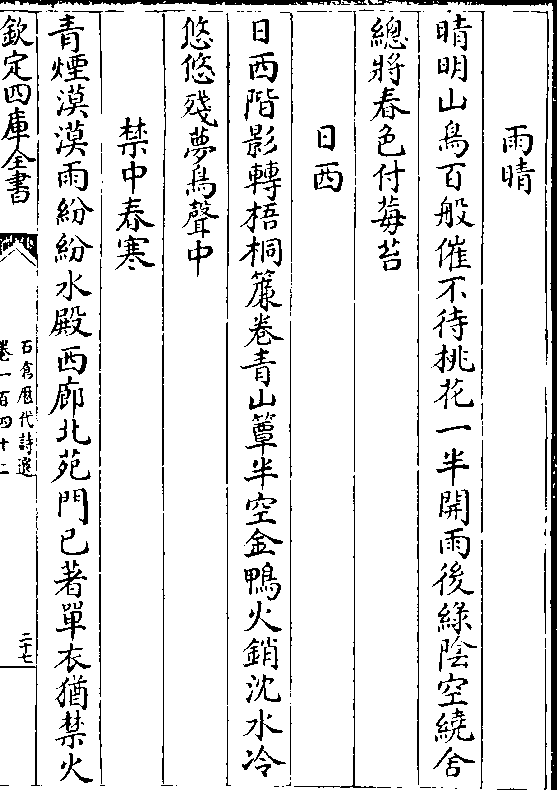 雨晴
晴明山鳥百般催不待桃花一半開雨後綠陰空繞舍
總將春色付莓苔
日西
日西階影轉梧桐簾卷青山簟半空金鴨火銷沈水冷
悠悠殘夢鳥聲中
禁中春寒
青煙漠漠雨紛紛水殿西廊北苑門已著單衣猶禁火
欽定四庫全書
石倉歷代詩選
卷一百四十二
二十七